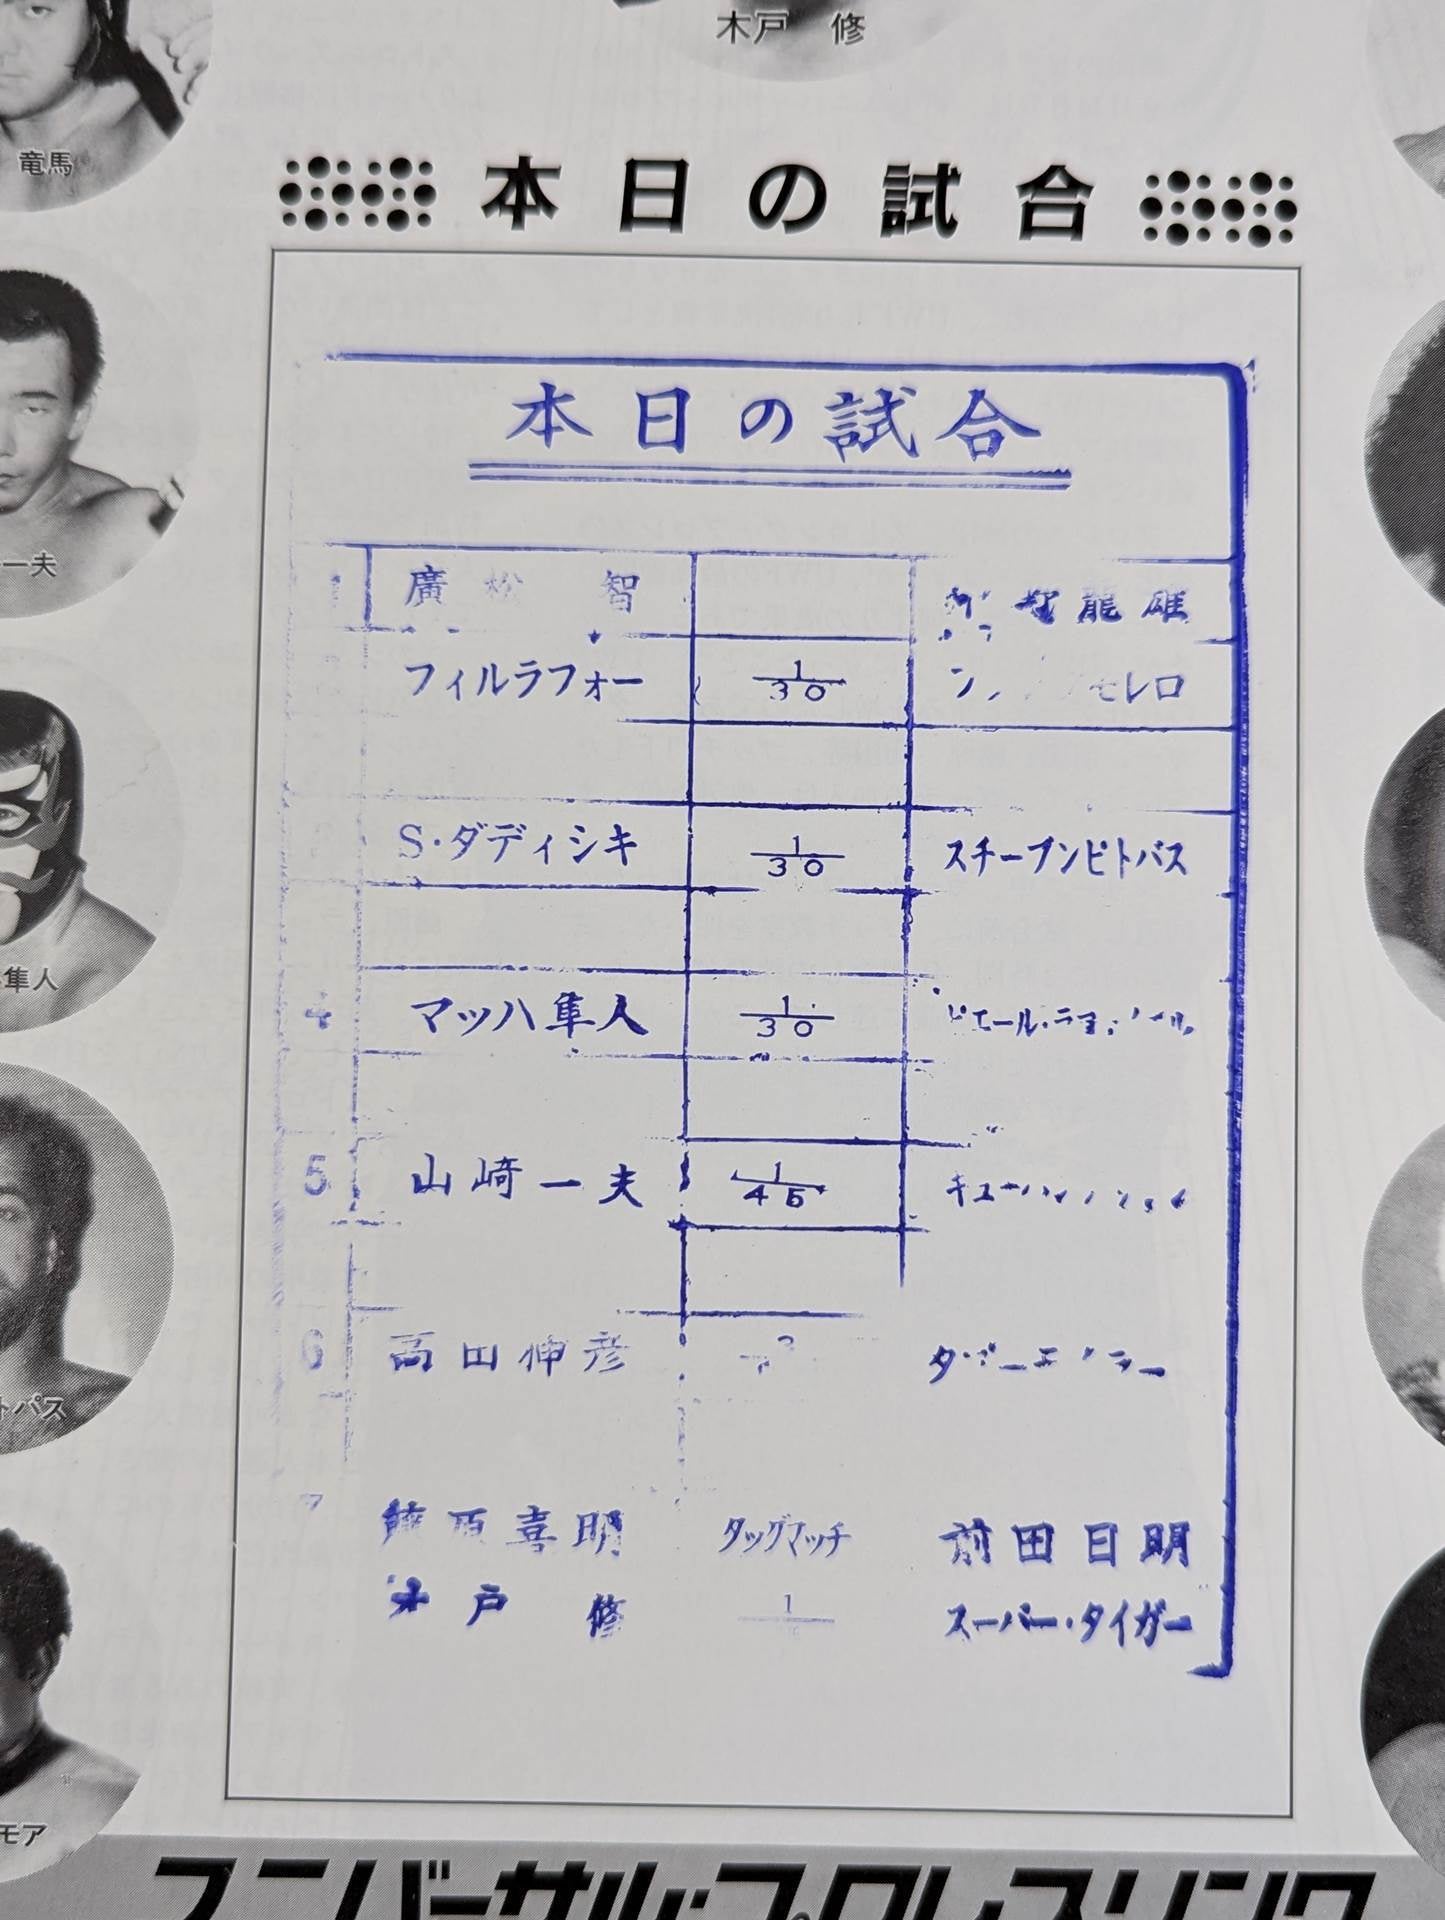 木戸 修
竜馬
本日の試合
本日の試合
廣松 智 龍雄
フィルラフォー 1/30 モレロ
S・ダディシキ 1/30 スチーブンピトパス
一夫
4 マッハ隼人 1/30 ピエール・
隼人
5 山崎一夫 1/45 キュー
6 高田伸彦
トパス
7 藤原喜明 タッグマッチ 前田日明
木戸 修 1 スーパー・タイガー
モア
ユニバーサル・プロレスリング